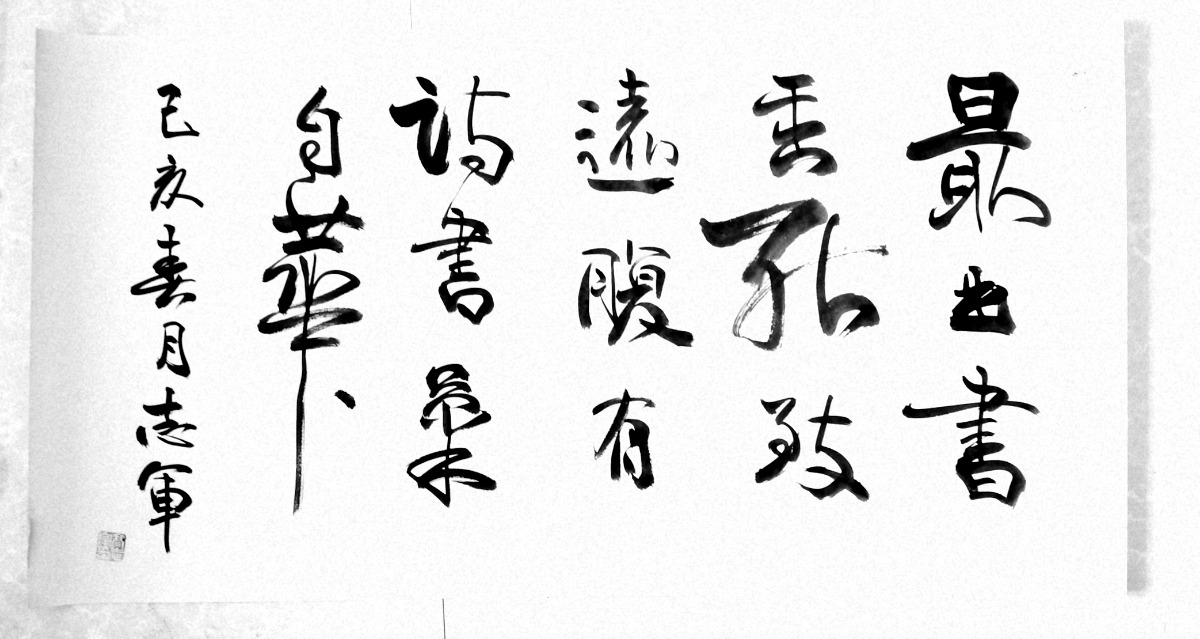 最是書
香能致
遠腹有
詩書氣
自華
己亥春月志軍